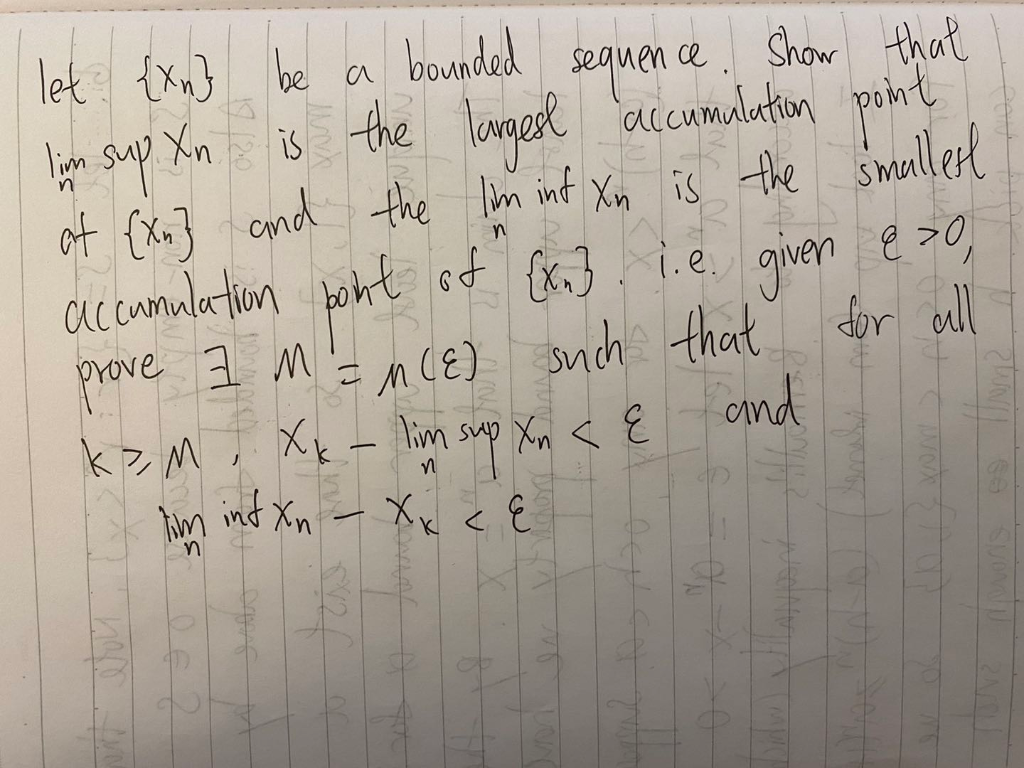 let {xn} be a bounded sequence. Show that
lim sup xn is the largest accumulation point
n
of {xn} and the lim inf xn is the smallest
n
accumulation point of {xn}. i.e. given ε > 0,
prove ∃ M = M(ε) such that for all
k ≥ M, xk − lim sup xn < ε and
n
lim inf xn − xk < ε
n